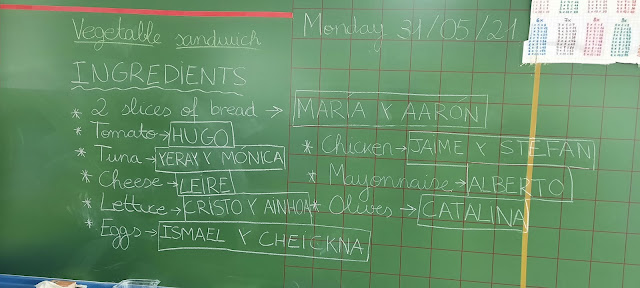 Vegetable sandwich
Monday 31/05/21
INGREDIENTS
* 2 slices of bread → MARÍA Y AARÓN
* Tomato → HUGO
* Tuna → YERAY Y MÓNICA
* Cheese → LEIRE
* Lettuce → CRISTO Y AINHOA
* Eggs → ISMAEL Y CHEICKNA
* Chicken → JAIME Y STEFAN
* Mayonnaise → ALBERTO
* Olives → CATALINA